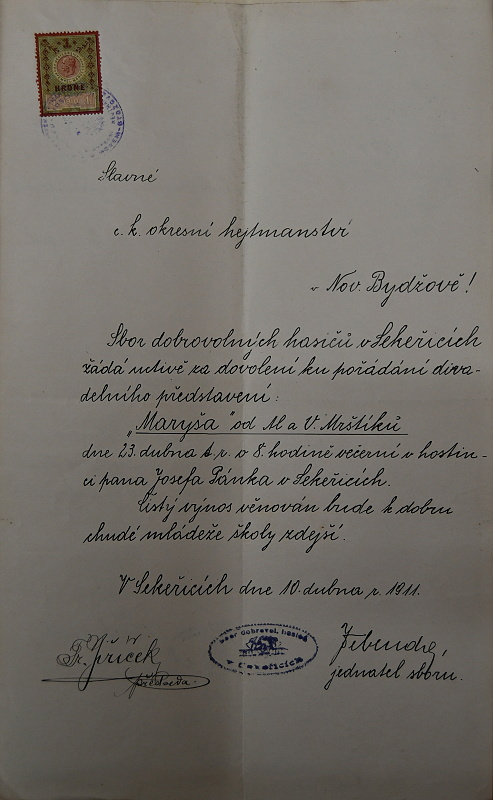 1
KRONE
Slavné
c. k. okresní hejtmanství
v Nov. Bydžově!
Sbor dobrovolných hasičů v Sekeřicích
žádá uctivě za dovolení ku pořádání diva-
delního představení:
"Maryša" od Al a V. Mrštíků
dne 23. dubna t. r. v 8. hodině večerní v hostin-
ci pana Josefa Pánka v Sekeřicích.
Čistý výnos věnován bude k dobru
chudé mládeže školy zdejší.
V Sekeřicích dne 10. dubna r. 1911.
Fr. Jříček
předseda.
Sbor dobrovol. hasičů
v Sekeřicích
jednatel sboru.